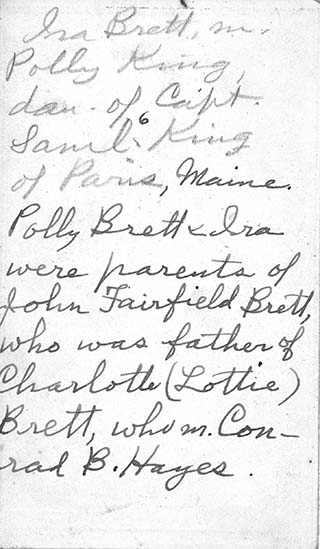 Ira Brett, m.
Polly King,
dau. of Capt.
Saml. 6 King
of Paris, Maine.
Polly Brett & Ira
were parents of
John Fairfield Brett,
who was father of
Charlotte (Lottie)
Brett, who m. Con-
rad B. Hayes.